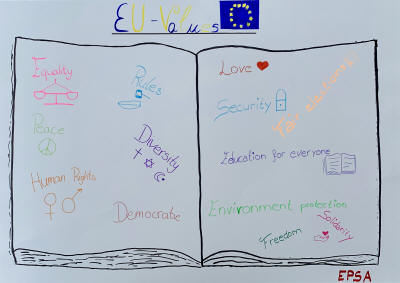 EU-Values
Equality
Rules
Peace
Diversity
Human Rights
Democratie
Love
Security
Fair elections
Education for everyone
Environment protection
Solidarity
Freedom
EPSA